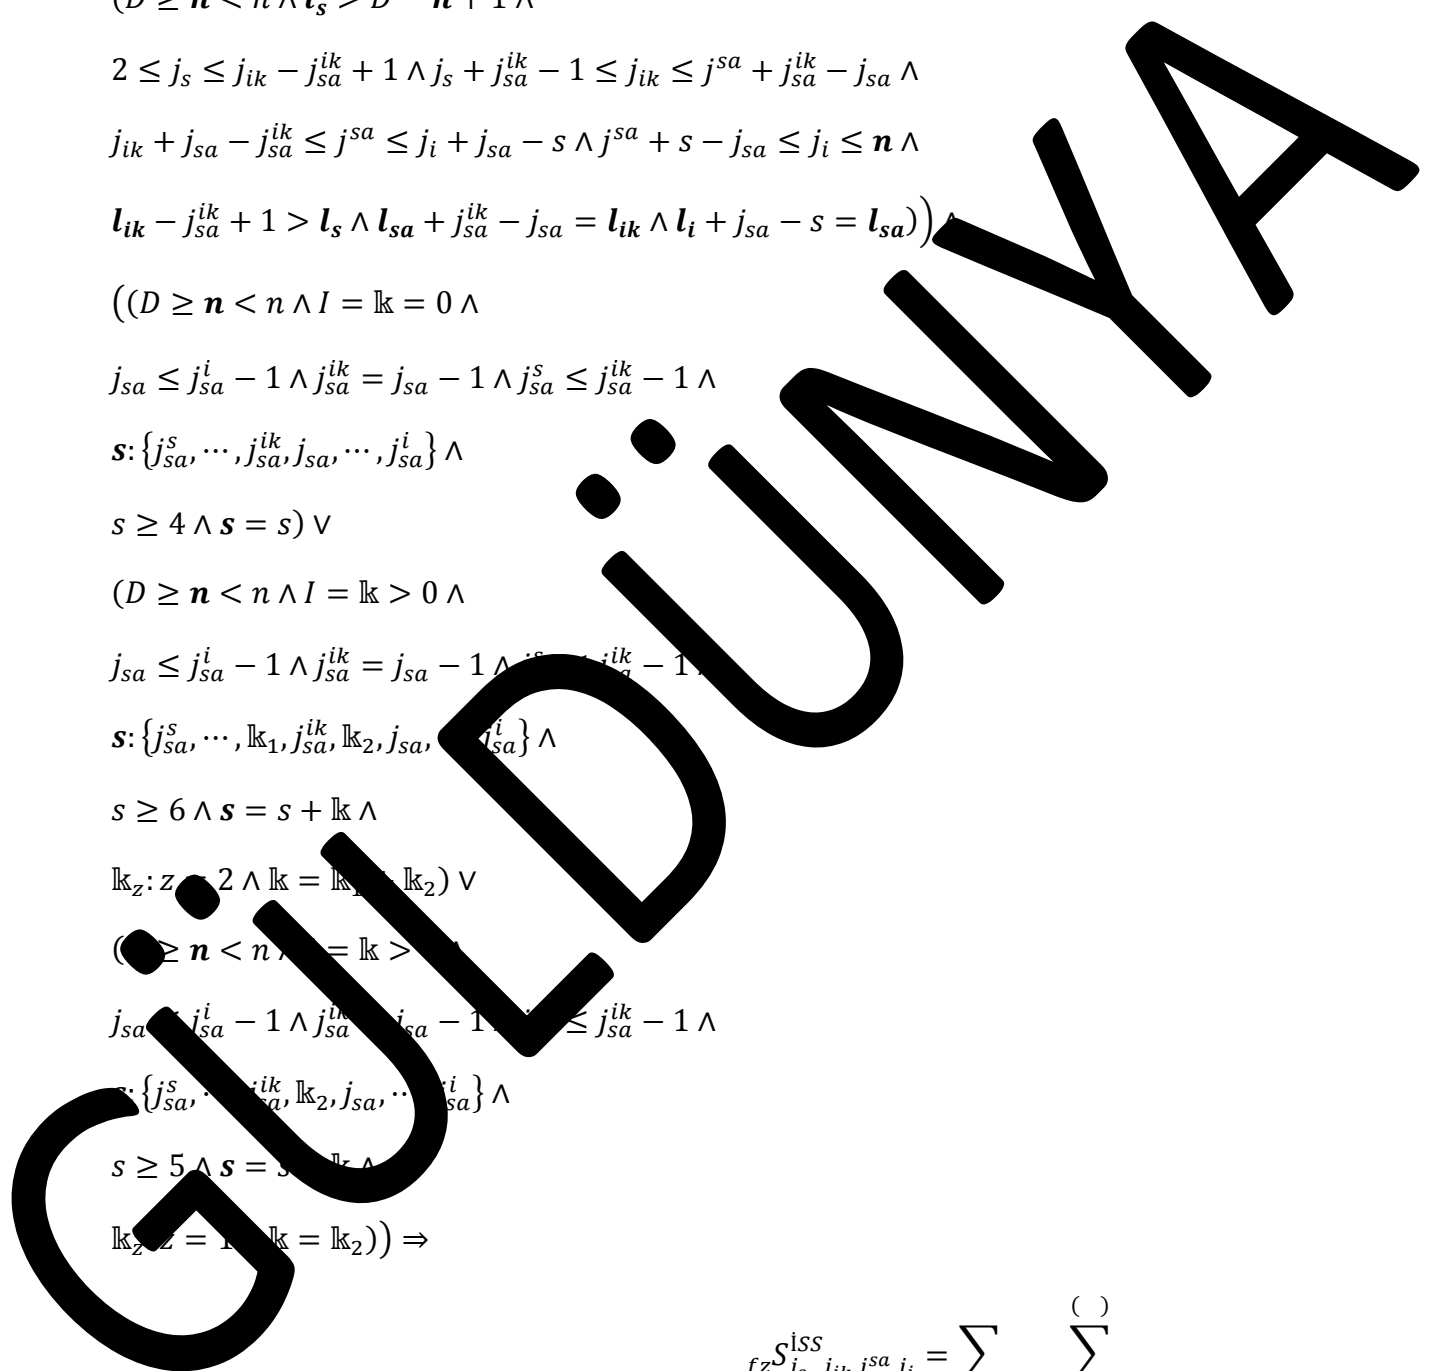 (D ≥ n < n ∧ l_s > D − n + 1 ∧
2 ≤ j_s ≤ j_{ik} − j_{sa}^{ik} + 1 ∧ j_s + j_{sa}^{ik} − 1 ≤ j_{ik} ≤ j^{sa} + j_{sa}^{ik} − j_{sa} ∧
j_{ik} + j_{sa} − j_{sa}^{ik} ≤ j^{sa} ≤ j_i + j_{sa} − s ∧ j^{sa} + s − j_{sa} ≤ j_i ≤ n ∧
l_{ik} − j_{sa}^{ik} + 1 > l_s ∧ l_{sa} + j_{sa}^{ik} − j_{sa} = l_{ik} ∧ l_i + j_{sa} − s = l_{sa})) ∧
((D ≥ n < n ∧ I = 𝕜 = 0 ∧
j_{sa} ≤ j_{sa}^{i} − 1 ∧ j_{sa}^{ik} = j_{sa} − 1 ∧ j_{sa}^{s} ≤ j_{sa}^{ik} − 1 ∧
s: {j_{sa}^{s}, ⋯ , j_{sa}^{ik}, j_{sa}, ⋯ , j_{sa}^{i}} ∧
s ≥ 4 ∧ s = s) ∨
(D ≥ n < n ∧ I = 𝕜 > 0 ∧
j_{sa} ≤ j_{sa}^{i} − 1 ∧ j_{sa}^{ik} = j_{sa} − 1 ∧ j_{sa}^{ik} − 1
s: {j_{sa}^{s}, ⋯ , 𝕜_1, j_{sa}^{ik}, 𝕜_2, j_{sa}, j_{sa}^{i}} ∧
s ≥ 6 ∧ s = s + 𝕜 ∧
𝕜_z: z = 2 ∧ 𝕜 = 𝕜_1 + 𝕜_2) ∨
( ≥ n < n = 𝕜 >
j_{sa} j_{sa}^{i} − 1 ∧ j_{sa}^{ik} j_{sa} − 1 ≤ j_{sa}^{ik} − 1 ∧
: {j_{sa}^{s}, j_{sa}^{ik}, 𝕜_2, j_{sa}, ⋯ j_{sa}^{i}} ∧
s ≥ 5 ∧ s = s 𝕜 ∧
𝕜_z: z = 1 𝕜 = 𝕜_2)) ⇒
( )
_{fz}S^{İSS}_{j_s, j_{ik}, j^{sa}, j_i} = ∑ ∑
GÜLDÜNYA